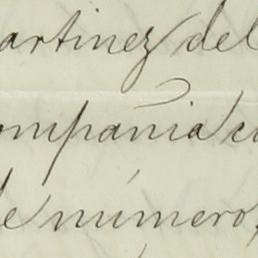 artinez del
ompañia c
de número,